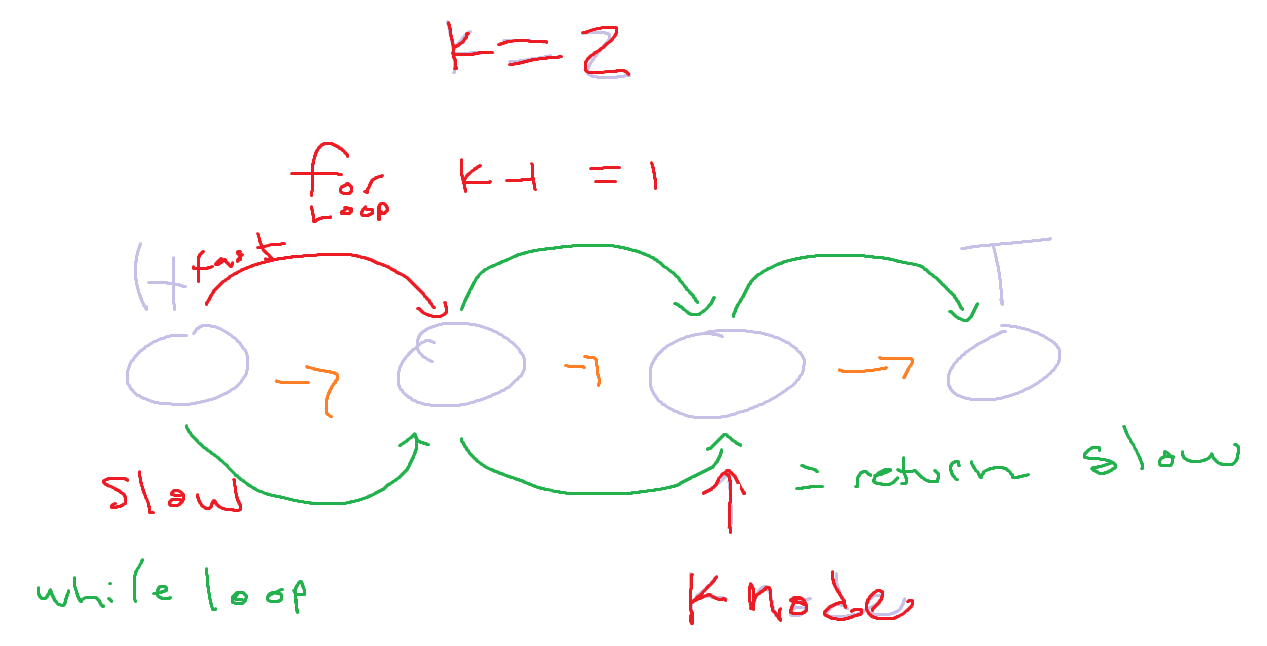 k = 2
for k-1 = 1
Loop
H fast T
slow = return slow
while loop K node